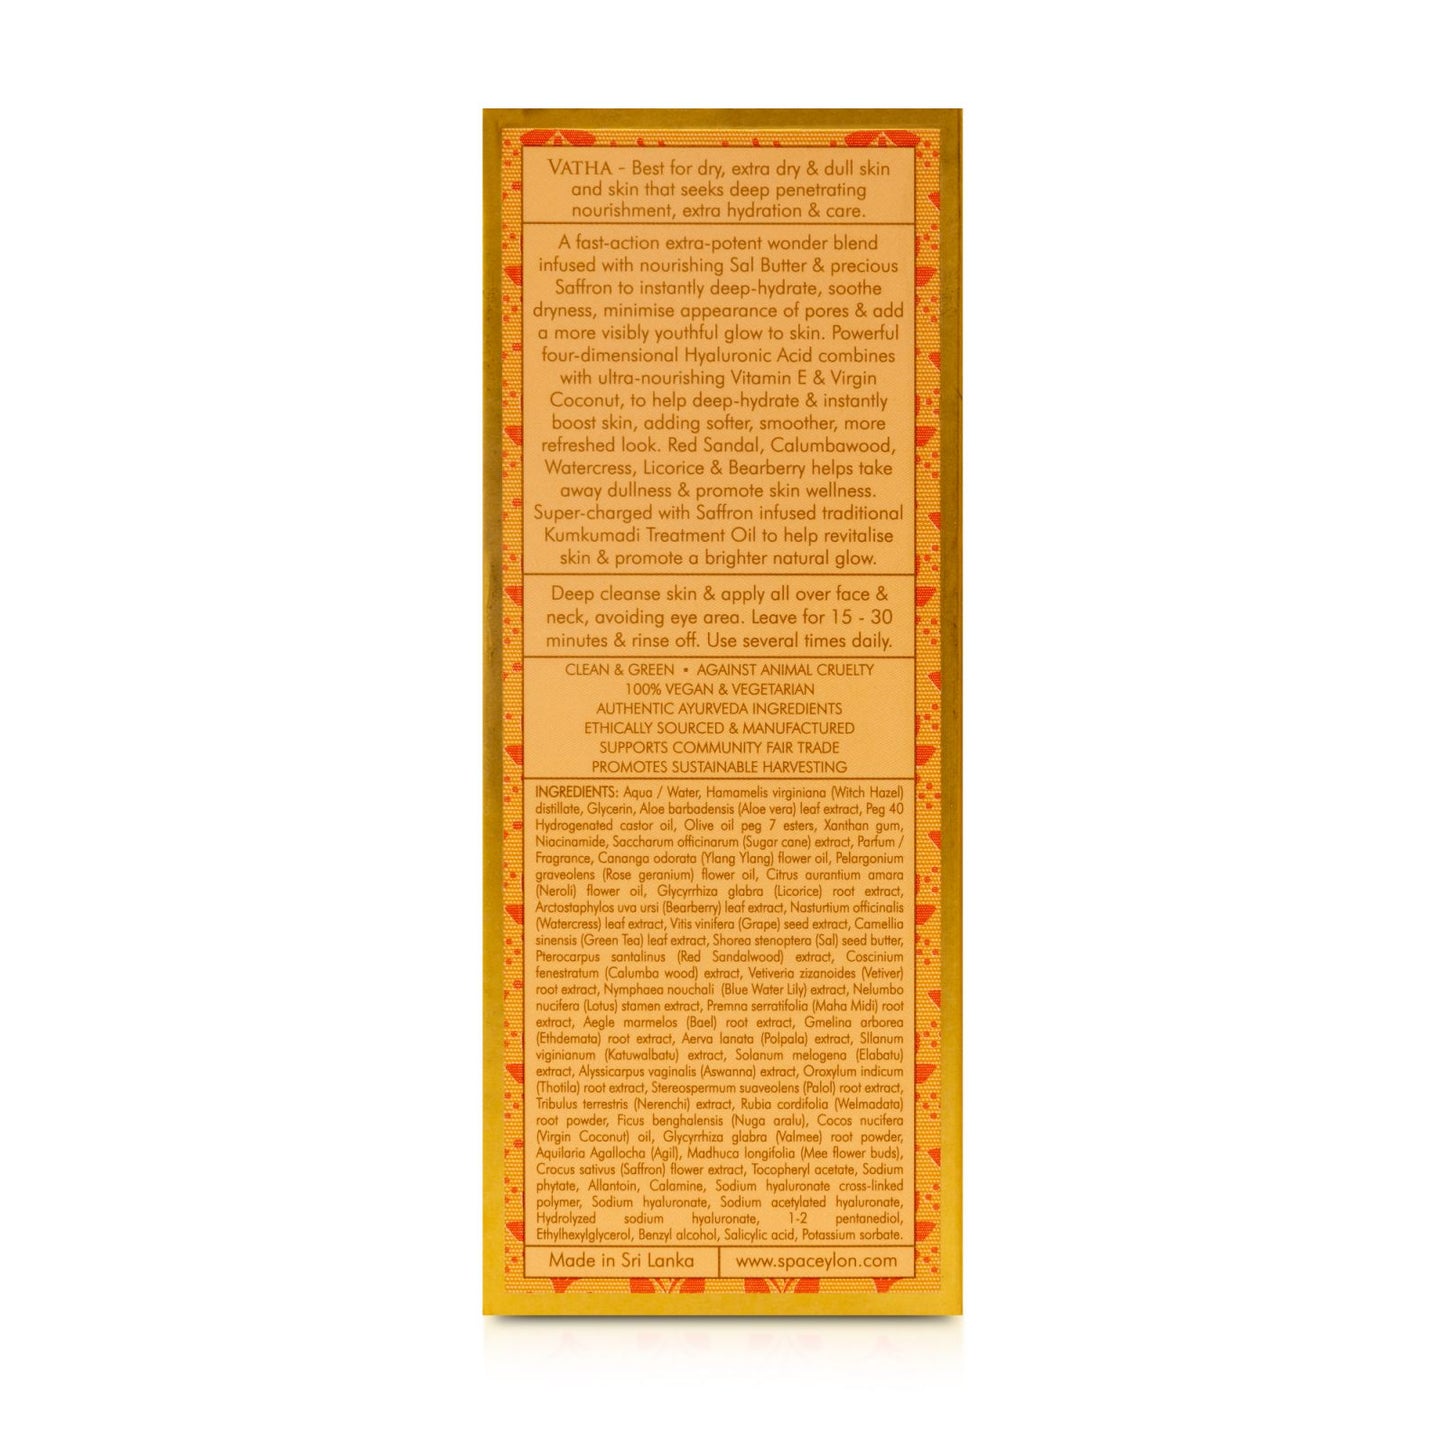 VATHA - Best for dry, extra dry & dull skin
and skin that seeks deep penetrating
nourishment, extra hydration & care.
A fast-action extra-potent wonder blend
infused with nourishing Sal Butter & precious
Saffron to instantly deep-hydrate, soothe
dryness, minimise appearance of pores & add
a more visibly youthful glow to skin. Powerful
four-dimensional Hyaluronic Acid combines
with ultra-nourishing Vitamin E & Virgin
Coconut, to help deep-hydrate & instantly
boost skin, adding softer, smoother, more
refreshed look. Red Sandal, Calumbawood,
Watercress, Licorice & Bearberry helps take
away dullness & promote skin wellness.
Super-charged with Saffron infused traditional
Kumkumadi Treatment Oil to help revitalise
skin & promote a brighter natural glow.
Deep cleanse skin & apply all over face &
neck, avoiding eye area. Leave for 15 - 30
minutes & rinse off. Use several times daily.
CLEAN & GREEN • AGAINST ANIMAL CRUELTY
100% VEGAN & VEGETARIAN
AUTHENTIC AYURVEDA INGREDIENTS
ETHICALLY SOURCED & MANUFACTURED
SUPPORTS COMMUNITY FAIR TRADE
PROMOTES SUSTAINABLE HARVESTING
INGREDIENTS: Aqua / Water, Hamamelis virginiana (Witch Hazel)
distillate, Glycerin, Aloe barbadensis (Aloe vera) leaf extract, Peg 40
Hydrogenated castor oil, Olive oil peg 7 esters, Xanthan gum,
Niacinamide, Saccharum officinarum (Sugar cane) extract, Parfum /
Fragrance, Cananga odorata (Ylang Ylang) flower oil, Pelargonium
graveolens (Rose geranium) flower oil, Citrus aurantium amara
(Neroli) flower oil, Glycyrrhiza glabra (Licorice) root extract,
Arctostaphylos uva ursi (Bearberry) leaf extract, Nasturtium officinalis
(Watercress) leaf extract, Vitis vinifera (Grape) seed extract, Camellia
sinensis (Green Tea) leaf extract, Shorea stenoptera (Sal) seed butter,
Pterocarpus santalinus (Red Sandalwood) extract, Coscinium
fenestratum (Calumba wood) extract, Vetiveria zizanoides (Vetiver)
root extract, Nymphaea nouchali (Blue Water Lily) extract, Nelumbo
nucifera (Lotus) stamen extract, Premna serratifolia (Maha Midi) root
extract, Aegle marmelos (Bael) root extract, Gmelina arborea
(Ethdemata) root extract, Aerva lanata (Polpala) extract, Sllanum
viginianum (Katuwalbatu) extract, Solanum melogena (Elabatu)
extract, Alyssicarpus vaginalis (Aswanna) extract, Oroxylum indicum
(Thotila) root extract, Stereospermum suaveolens (Palol) root extract,
Tribulus terrestris (Nerenchi) extract, Rubia cordifolia (Welmadata)
root powder, Ficus benghalensis (Nuga aralu), Cocos nucifera
(Virgin Coconut) oil, Glycyrrhiza glabra (Valmee) root powder,
Aquilaria Agallocha (Agil), Madhuca longifolia (Mee flower buds),
Crocus sativus (Saffron) flower extract, Tocopheryl acetate, Sodium
phytate, Allantoin, Calamine, Sodium hyaluronate cross-linked
polymer, Sodium hyaluronate, Sodium acetylated hyaluronate,
Hydrolyzed sodium hyaluronate, 1-2 pentanediol,
Ethylhexylglycerol, Benzyl alcohol, Salicylic acid, Potassium sorbate.
Made in Sri Lanka
www.spaceylon.com